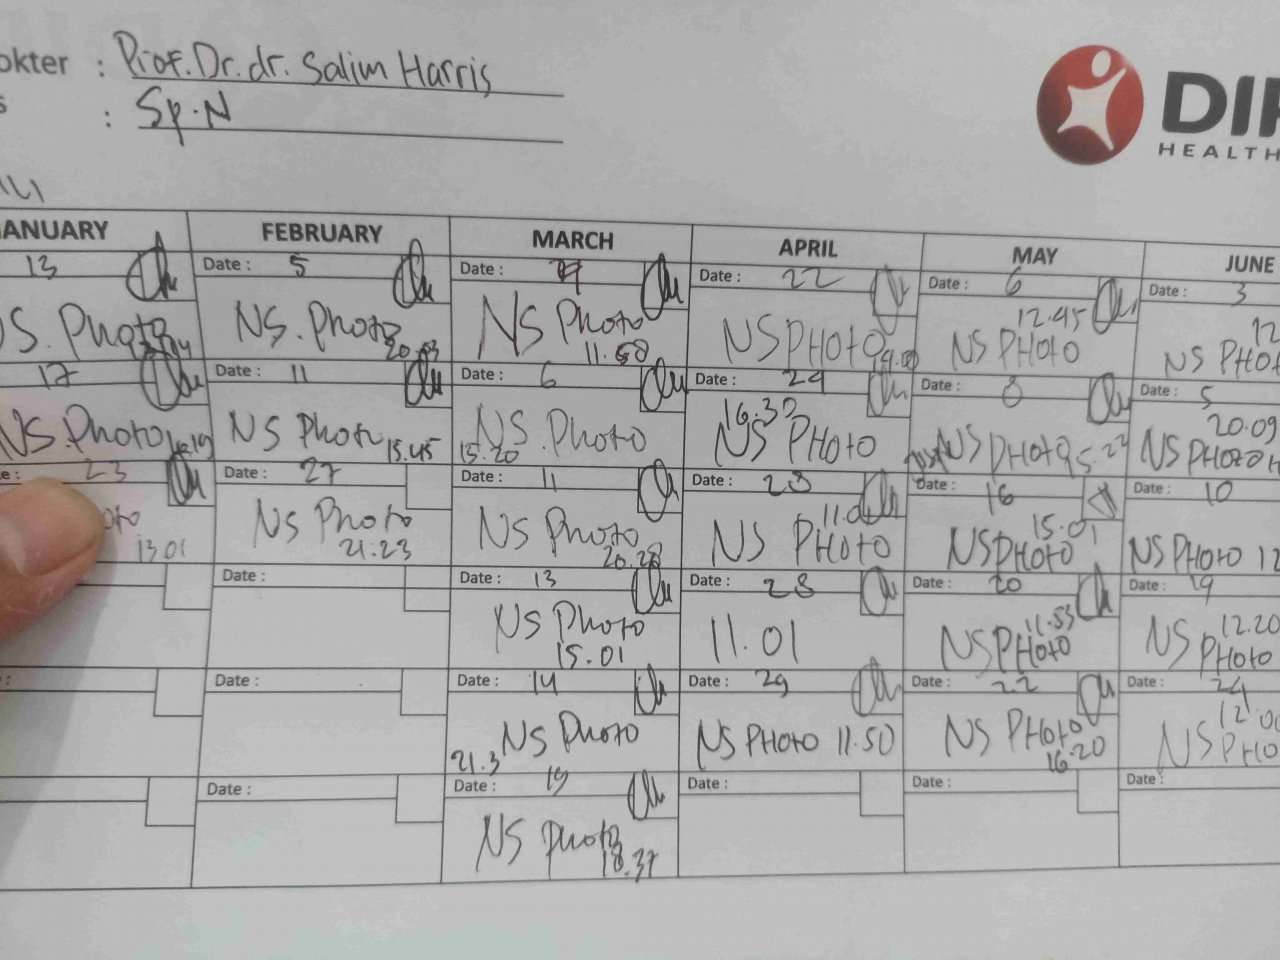 okter : Prof. Dr. dr. Salim Harris
s : Sp.N
DIR
HEALTH
ANUARY FEBRUARY MARCH APRIL MAY JUNE
13 Date : 5 Date : Date : 22 Date : 6 Date : 3
S. Photo NS. Photo NS Photo 11.58 NS PHOto 12.45 NS PHOto 12 NS PHOt
17 Date : 11 Date : 6 Date : 24 Date : 8 Date : 5
NS. Photo NS Photo 15.45 15.20 NS. Photo 16.33 NS PHOto NS PHOto 20.09 NS PHOto
e: 23 Date : 27 Date : 11 Date : 23 Date : 16 Date : 10
oto 13.01 NS Photo 21.23 NS Photo 20.28 NS PHOto 15.01 NS PHOto NS PHOto 12
Date : Date : 13 Date : 28 Date : 20 19
NS Photo 15.01 11.01 11.53 NS PHOto 12.20 NS PHOto
: Date : Date : 14 Date : 29 Date : 22 Date : 24
21.3 NS Photo NS PHOto 11.50 NS PHOto 16.20 NS PHO
Date : Date : 19 Date : Date : Date :
NS Photo 18.37